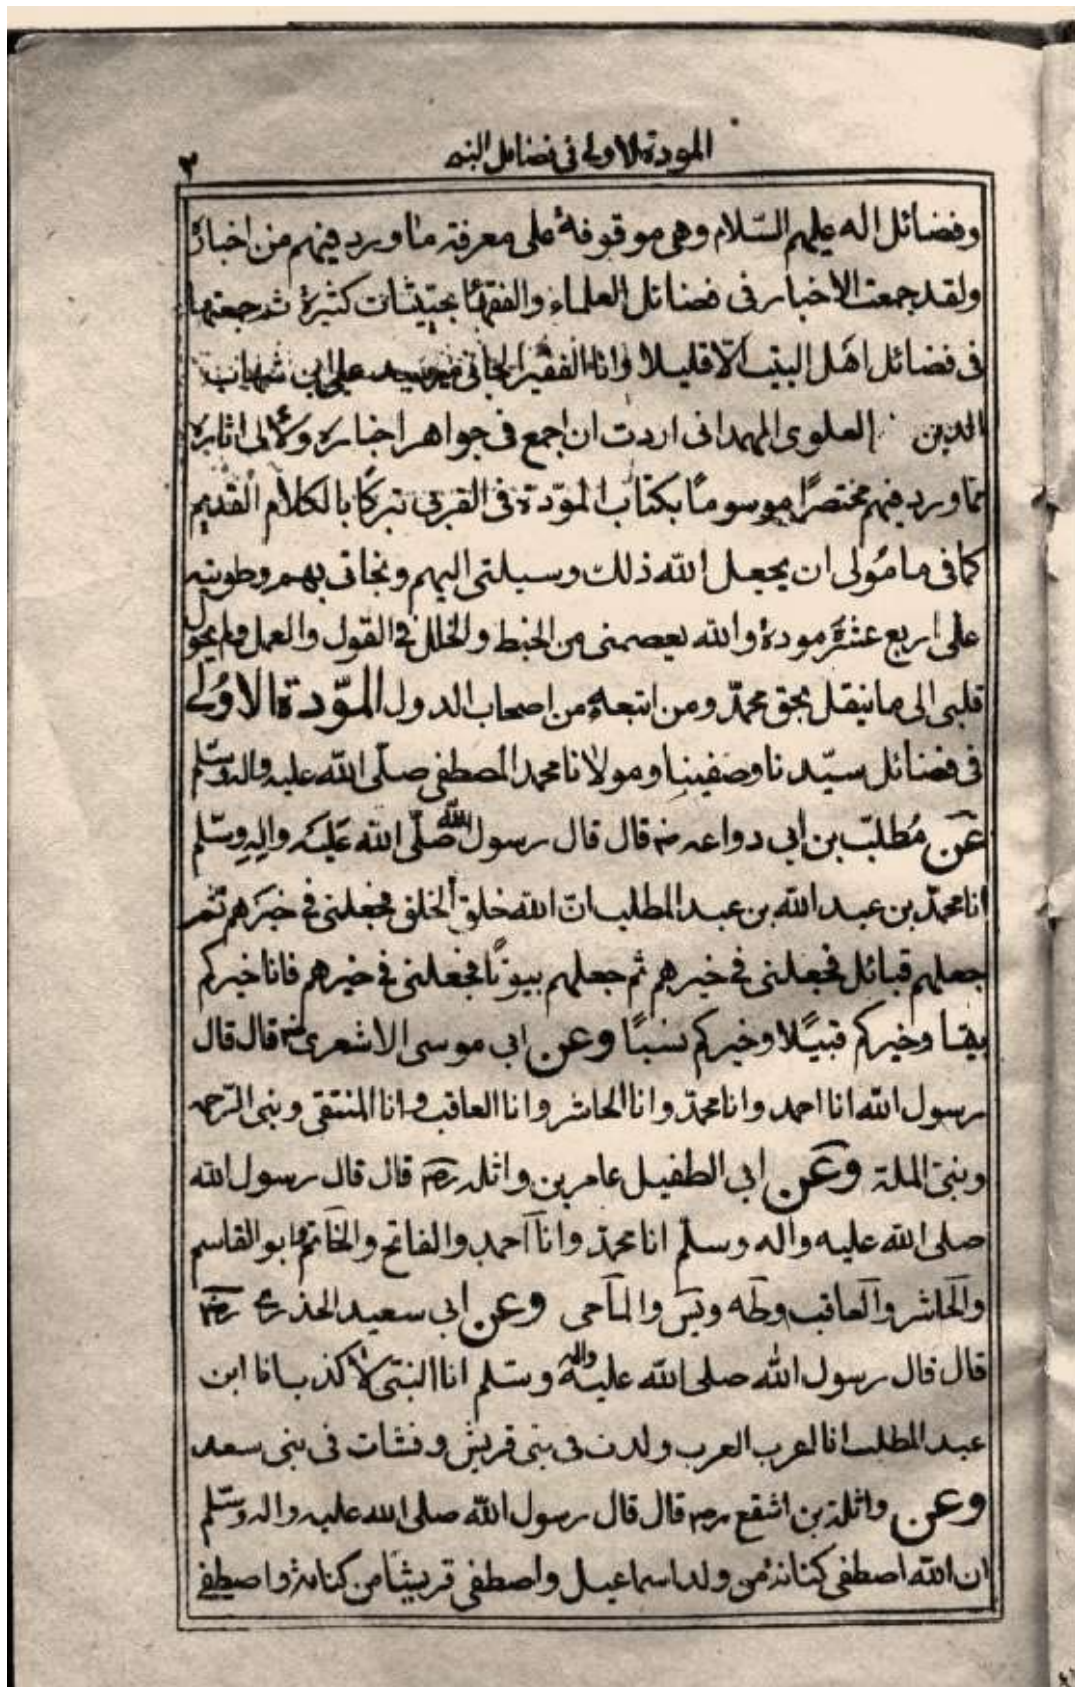 المودة الاولى فى فضائل النبى
٢
وفضائل اله عليهم السّلام وهى موقوفة على معرفة ما ورد فيهم من اخبار
ولقد جمعت الاخبار فى فضائل العلماء والفقهاء كثيرة
فى فضائل اهل البيت الّا قليلا وانا الفقير الجانى على ابن شهاب
الدين العلوى الهمدانى اردت ان اجمع فى جواهر اخباره ولآلى اثاره
مما ورد فيهم مختصرًا موسومًا بكتاب المودّة فى القربى تبركًا بالكلام القديم
كما فى مامُولى ان يجعل الله ذلك وسيلتى اليهم ونجاتى بهم وطويته
على اربع عشرة مودة والله يعصمنى من الخبط والخلل فى القول والعمل ولم يحول
قلبى الى ما ينقل بحق محمدّ ومن اتبعه من اصحاب الدول المودّة الاوُلى
فى فضائل سيّدنا وصفينا ومولانا محمد المصطفى صلّى الله عليه واله وسلّم
عَن مُطلبّ بن ابى دواعه رضـ قال قال رسول الله صلّى الله عَليَه والِهِ وسَلّم
انا محمدّ بن عبد الله بن عبد المطلب انّ الله خلق الخلق فجعلنى فى خيرهم ثم
جعلهم قبائل فجعلنى فى خيرهم ثم جعلهم بيوتًا فجعلنى فى خيرهم فانا خيركم
بيتا وخيركم قبيًلا وخيركم نسبًا وعن ابى موسى الاشعرى رضـ قال قال
رسول الله انا احمد وانا محمدّ وانا الحاشر وانا العاقب وانا المنتقى ونبى الرّحمه
ونبىّ الملة وعَن ابى الطفيل عامر بن واثله رضـ قال قال رسول الله
صلى الله عليه واله وسلّم انا محمدّ وانا آحمد والفاتح والخاتم وابو القاسم
والحاشر والعاقب وطه ويس والماحى وعن ابى سعيد الخذرى رضـ
قال قال رسول الله صلى الله عليه واله وسّلم انا النبىّ لا كذب انا ابن
عبد المطلب انا اعرب العرب ولدت فى بنى قريش ونشات فى بنى سعد
وعن واثلة بن اشقع رضـ قال قال رسول الله صلى الله عليه واله وسّلم
ان الله اصطفى كنانة من ولد اسماعيل واصطفى قريشا من كنانة واصطفى